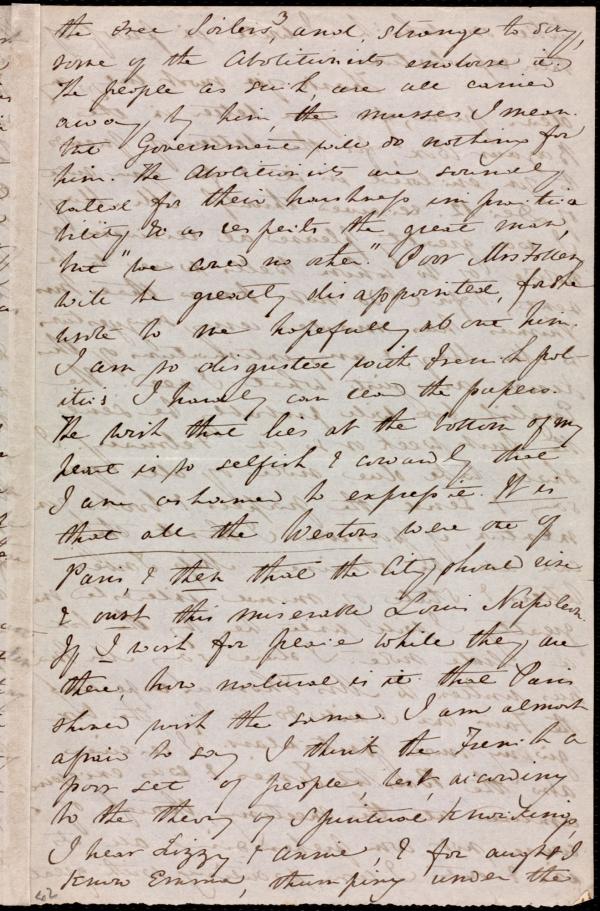 3
the Free Soilers, and, strange to say,
some of the Abolitionists endorse it.
The people as such are all carried
away by him, the masses I mean.
The Government will do nothing for
him. The Abolitionists are soundly
rated for their harshness impractica
bility &c as respects the great man,
but "we could no other." Poor Mrs Follen
will be greatly disappointed, for she
wrote to me hopefully about him.
I am so disgusted with French pol-
itics I hardly can read the papers.
The wish that lies at the bottom of my
heart is so selfish & cowardly that
I am ashamed to express it. It is
that all the Westons were out of
Paris, & then that the City should rise
& oust this miserable Louis Napoleon.
If I wish for peace while they are
there, how natural is it that Paris
should wish the same. I am almost
afraid to say I think the French a
poor set of people, lest, according
to the theory of Spiritual Knockings,
I hear Lizzy & Annie, & for aught I
know Emma, thumping under the
42